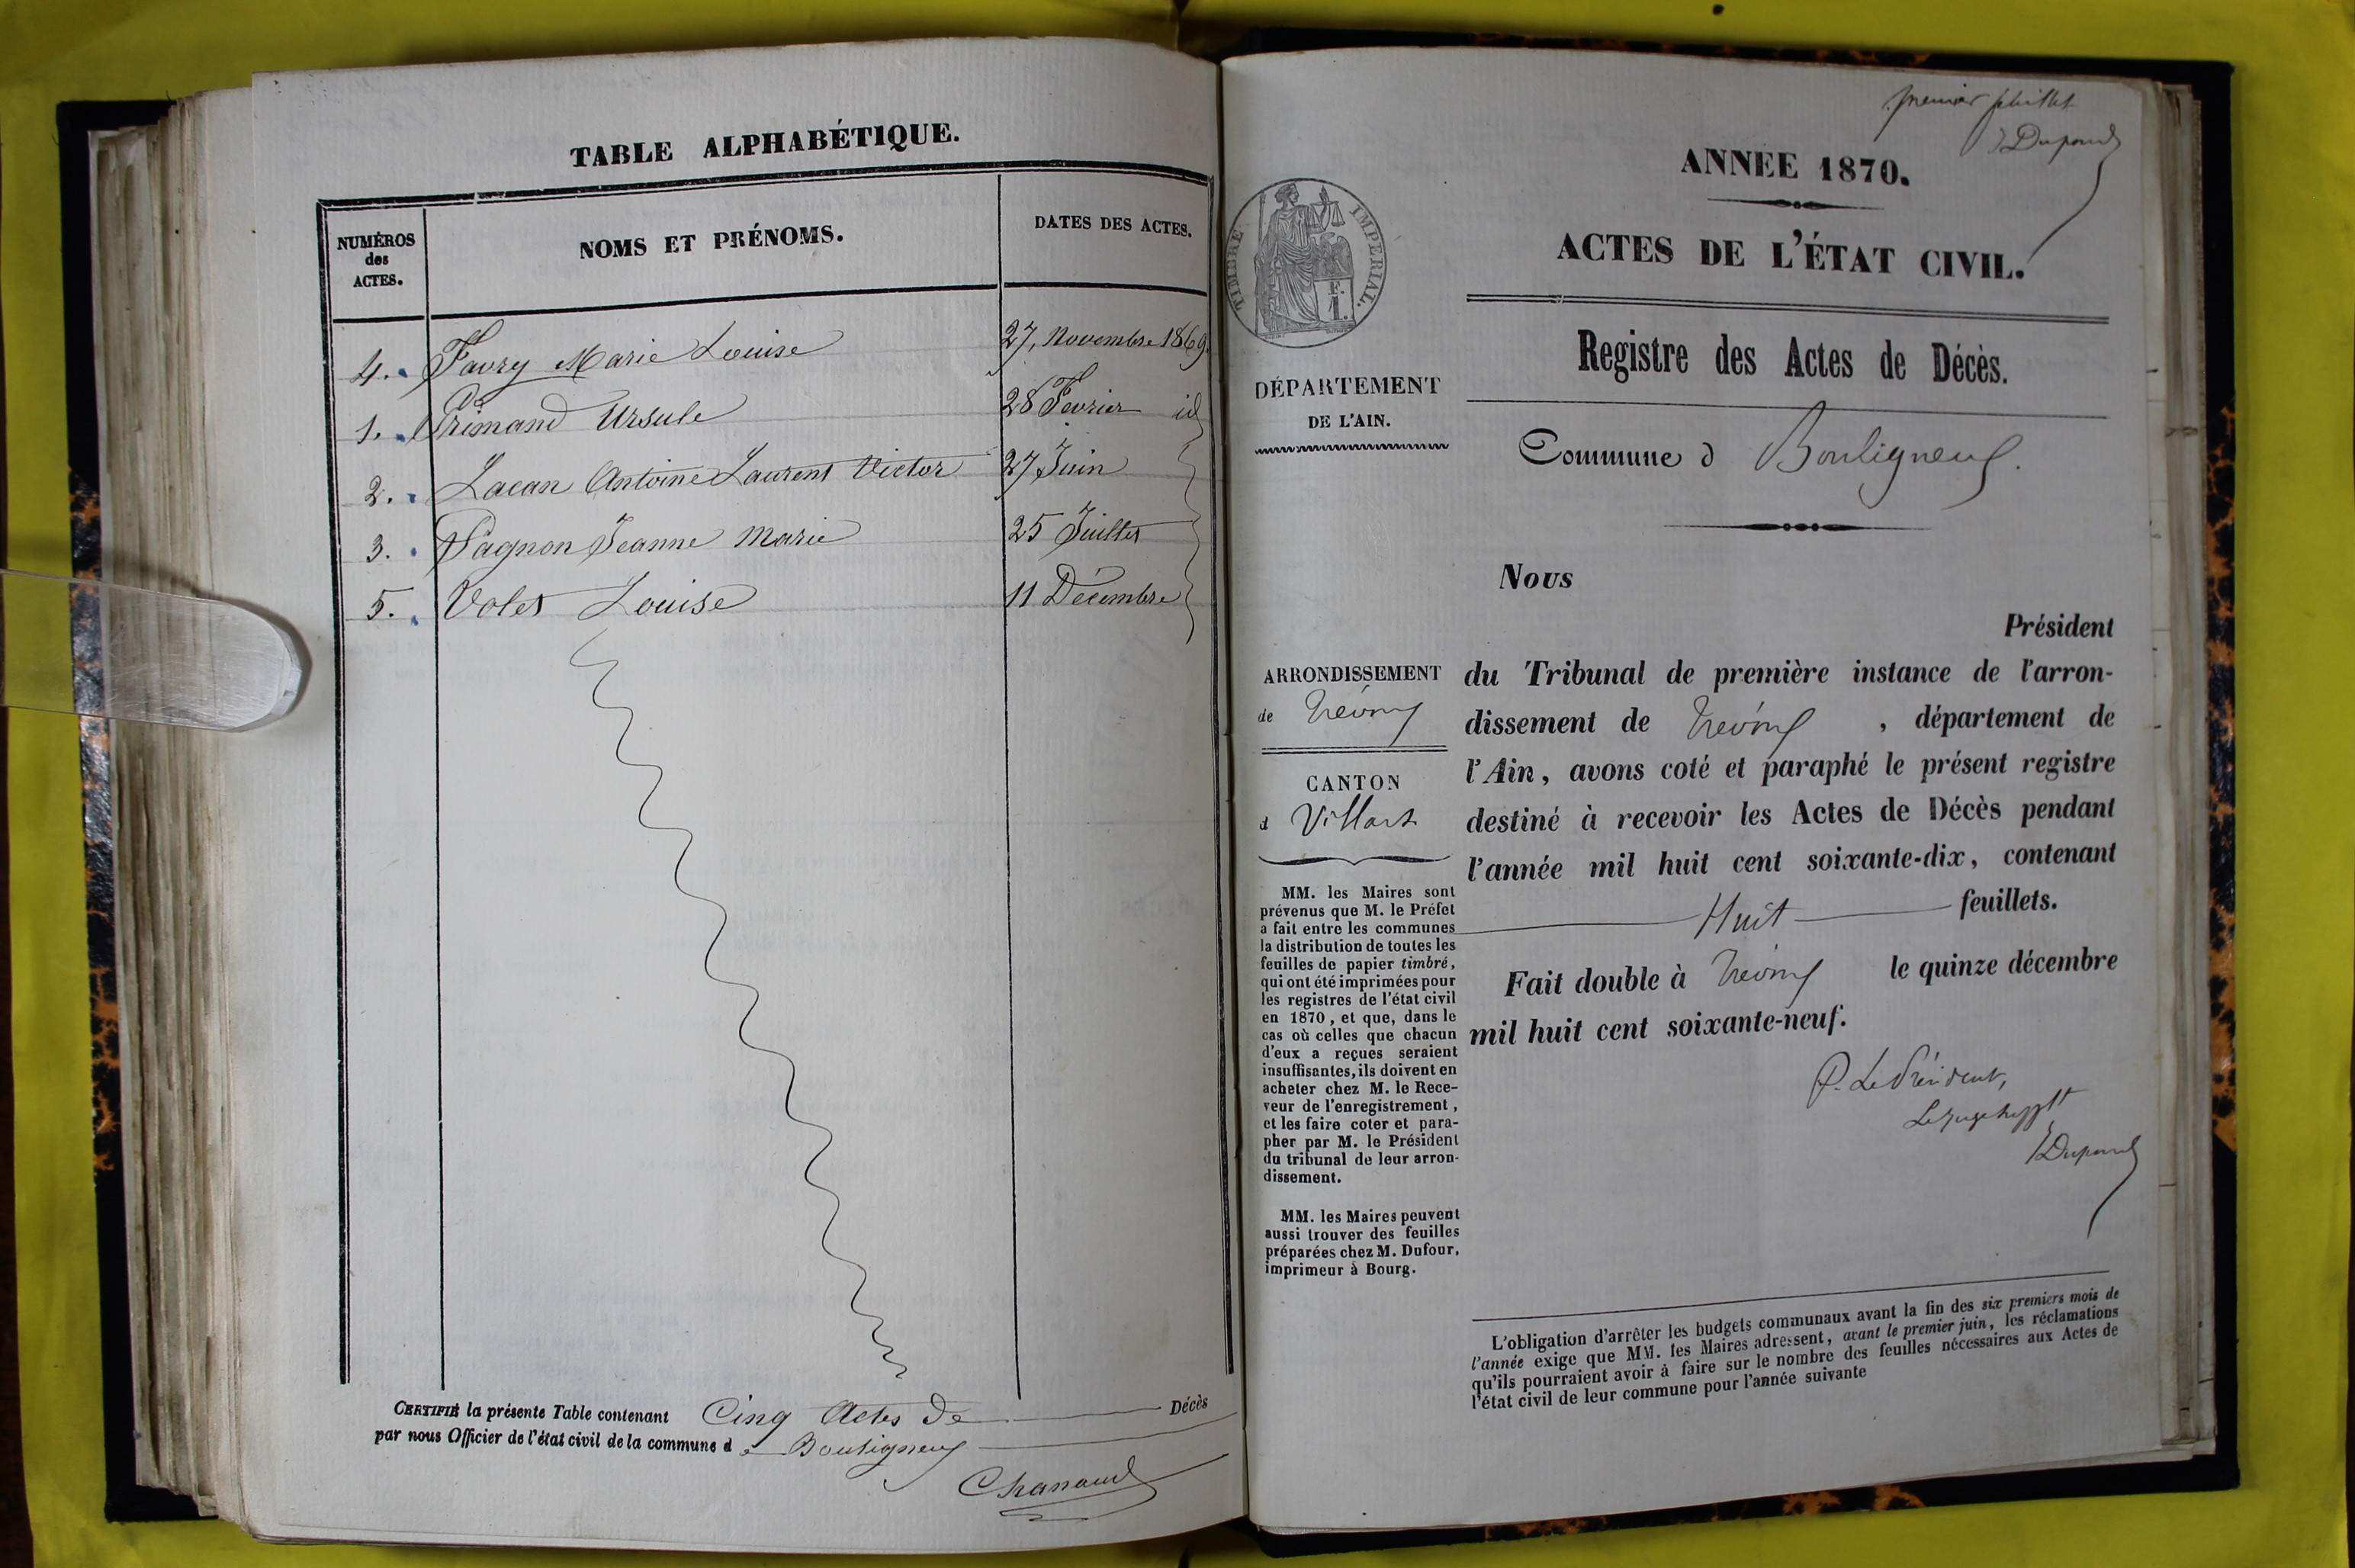 TABLE ALPHABÉTIQUE.
NUMÉROS
des
ACTES.
NOMS ET PRÉNOMS.
DATES DES ACTES.
4. Favry Marie Louise 27, Novembre 1869.
1. Grimand Ursule 28 Fevrier id
2. Lacan Antoine Laurent Victor 27 Juin
3. Pagnon Jeanne Marie 25 Juillet
5. Volet Louise 11 Décembre
CERTIFIÉ la présente Table contenant Cinq Actes de Décès
par nous Officier de l'état civil de la commune de Bouligneux
Chanaud
premier feuillet
Dupond
ANNÉE 1870.
ACTES DE L'ÉTAT CIVIL.
TIMBRE IMPERIAL.
F.
1.
Registre des Actes de Décès.
DÉPARTEMENT
DE L'AIN.
Commune d Bouligneux.
Nous
Président
ARRONDISSEMENT
de Trévoux
CANTON
d Villars
du Tribunal de première instance de l'arron-
dissement de Trévoux, département de
l'Ain, avons coté et paraphé le présent registre
destiné à recevoir les Actes de Décès pendant
l'année mil huit cent soixante-dix, contenant
Huit feuillets.
Fait double à Trévoux le quinze décembre
mil huit cent soixante-neuf.
P. Le Président,
Le Juge suppt
Dupond
MM. les Maires sont
prévenus que M. le Préfet
a fait entre les communes
la distribution de toutes les
feuilles de papier timbré,
qui ont été imprimées pour
les registres de l'état civil
en 1870, et que, dans le
cas où celles que chacun
d'eux a reçues seraient
insuffisantes, ils doivent en
acheter chez M. le Rece-
veur de l'enregistrement,
et les faire coter et para-
pher par M. le Président
du tribunal de leur arron-
dissement.
MM. les Maires peuvent
aussi trouver des feuilles
préparées chez M. Dufour,
imprimeur à Bourg.
L'obligation d'arrêter les budgets communaux avant la fin des six premiers mois de
l'année exige que MM. les Maires adressent, avant le premier juin, les réclamations
qu'ils pourraient avoir à faire sur le nombre des feuilles nécessaires aux Actes de
l'état civil de leur commune pour l'année suivante